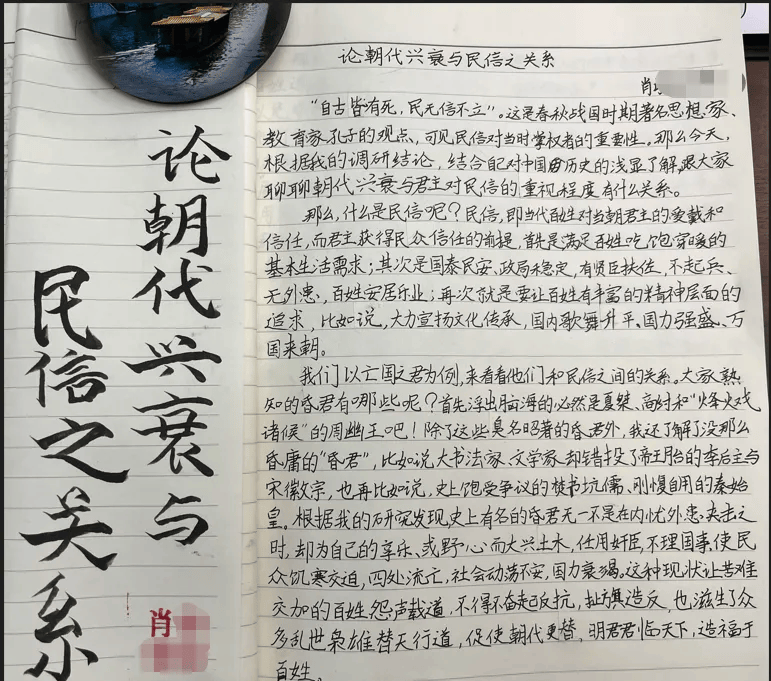 论朝代兴衰与
民信之关系
肖
论朝代兴衰与民信之关系
肖
“自古皆有死,民无信不立”。这是春秋战国时期著名思想家、
教育家孔子的观点,可见民信对当时掌权者的重要性,那么今天,
根据我的调研结论,结合自对中国历史的浅显了解,跟大家
聊聊朝代兴衰与君主对民信的重视程度有什么关系。
那么,什么是民信呢?民信,即当代百姓对当朝君主的爱戴和
信任,而君主获得民众信任的前提,首先是满足百姓吃饱穿暖的
基本生活需求;其次是国泰民安、政局稳定,有贤臣扶佐,不起兵、
无外患,百姓安居乐业;再次就是要让百姓有丰富的精神层面的
追求,比如说,大力宣扬文化传承,国内歌舞升平、国力强盛、万
国来朝。
我们以亡国之君为例,来看看他们和民信之间的关系。大家熟
知的昏君有哪些呢?首先浮出脑海的必然是夏桀、商纣和“烽火戏
诸侯”的周幽王吧!除了这些臭名昭著的昏君外,我还了解了没那么
昏庸的“昏君”,比如说大书法家、文学家,却错投了帝王胎的李后主与
宋徽宗,也再比如说,史上饱受争议的焚书坑儒、刚愎自用的秦始
皇。根据我的研究发现,史上有名的昏君无一不是在内忧外患、夹击之
时,却为自己的享乐、或野心而大兴土木,任用奸臣,不理国事,使民
众饥寒交迫,四处流亡,社会动荡不安,国力衰竭。这种现状让苦难
交加的百姓怨声载道,不得不奋起反抗,扯旗造反,也滋生了众
多乱世枭雄替天行道,促使朝代更替,明君君临天下,造福于
百姓。